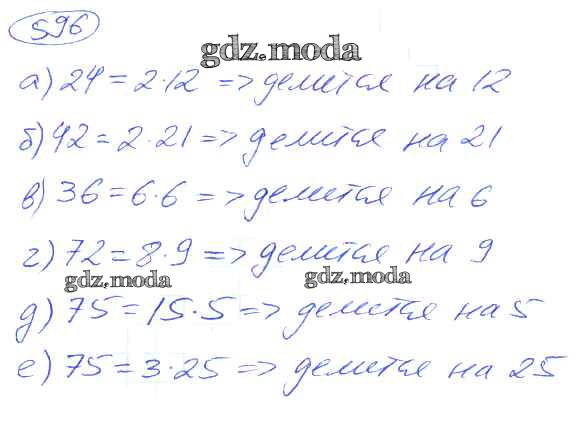 596
gdz.moda
а) 24 = 2·12 => делится на 12
б) 42 = 2·21 => делится на 21
в) 36 = 6·6 => делится на 6
г) 72 = 8·9 => делится на 9
gdz.moda gdz.moda
д) 75 = 15·5 => делится на 5
е) 75 = 3·25 => делится на 25